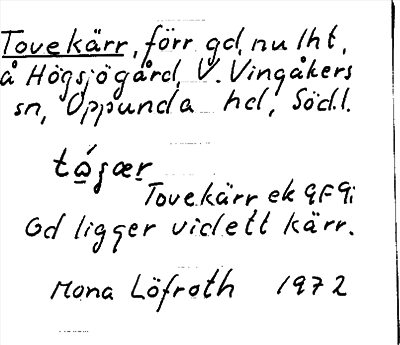 Tovekärr, förr gd, nu lht,
å Högsjögård, V. Vingåkers
sn, Oppunda hd, Södl.
Tovekärr ek
Gd ligger vid ett kärr.
Mona Löfroth 1972